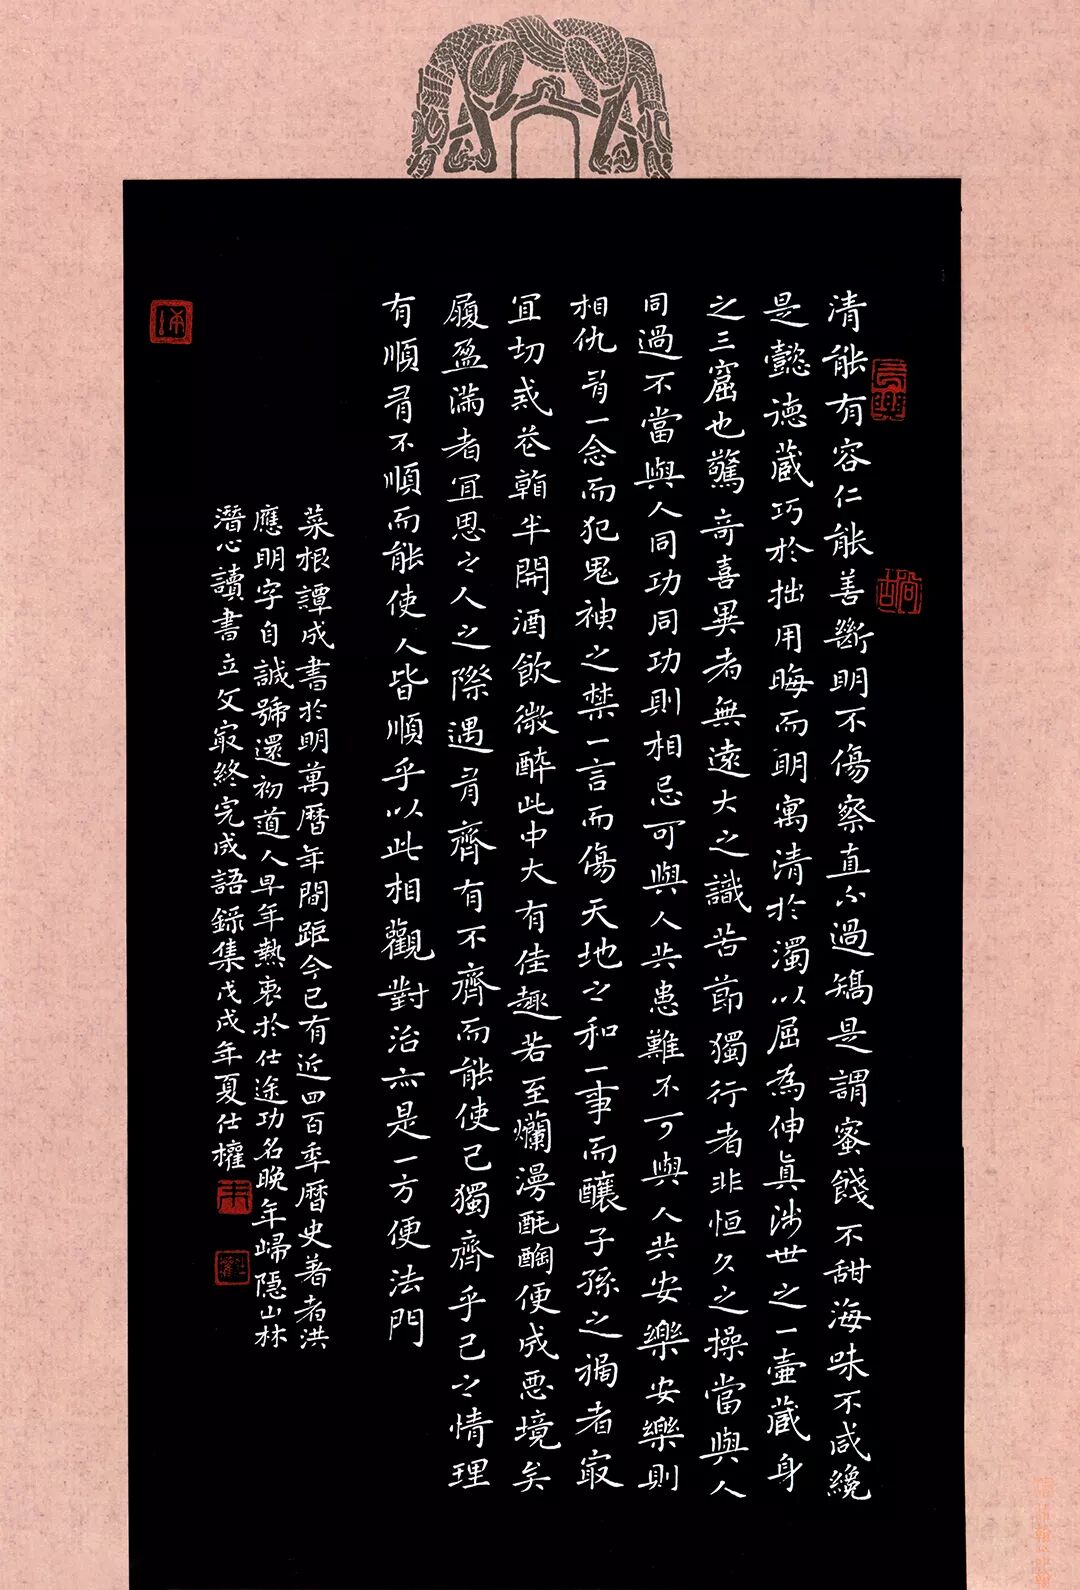 清能有容仁能善斷明不傷察直不過矯是謂蜜餞不甜海味不咸纔
是懿德藏巧於拙用晦而明寓清於濁以屈為伸真涉世之一壺藏身
之三窟也驚奇喜異者無遠大之識苦節獨行者非恒久之操當與人
同過不當與人同功同功則相忌可與人共患難不可與人共安樂安樂則
相仇有一念而犯鬼神之禁一言而傷天地之和一事而釀子孫之禍者最
宜切戒花翰半開酒飲微醉此中大有佳趣若至爛漫酕醄便成惡境矣
履盈滿者宜思之人之際遇有齊有不齊而能使己獨齊乎己之情理
有順有不順而能使人皆順乎以此相觀對治亦是一方便法門
菜根譚成書於明萬曆年間距今已有近四百年歷史著者洪
應明字自誠號還初道人早年熱衷於仕途功名晚年歸隱山林
潛心讀書立文最終完成語錄集戊戌年夏仕權